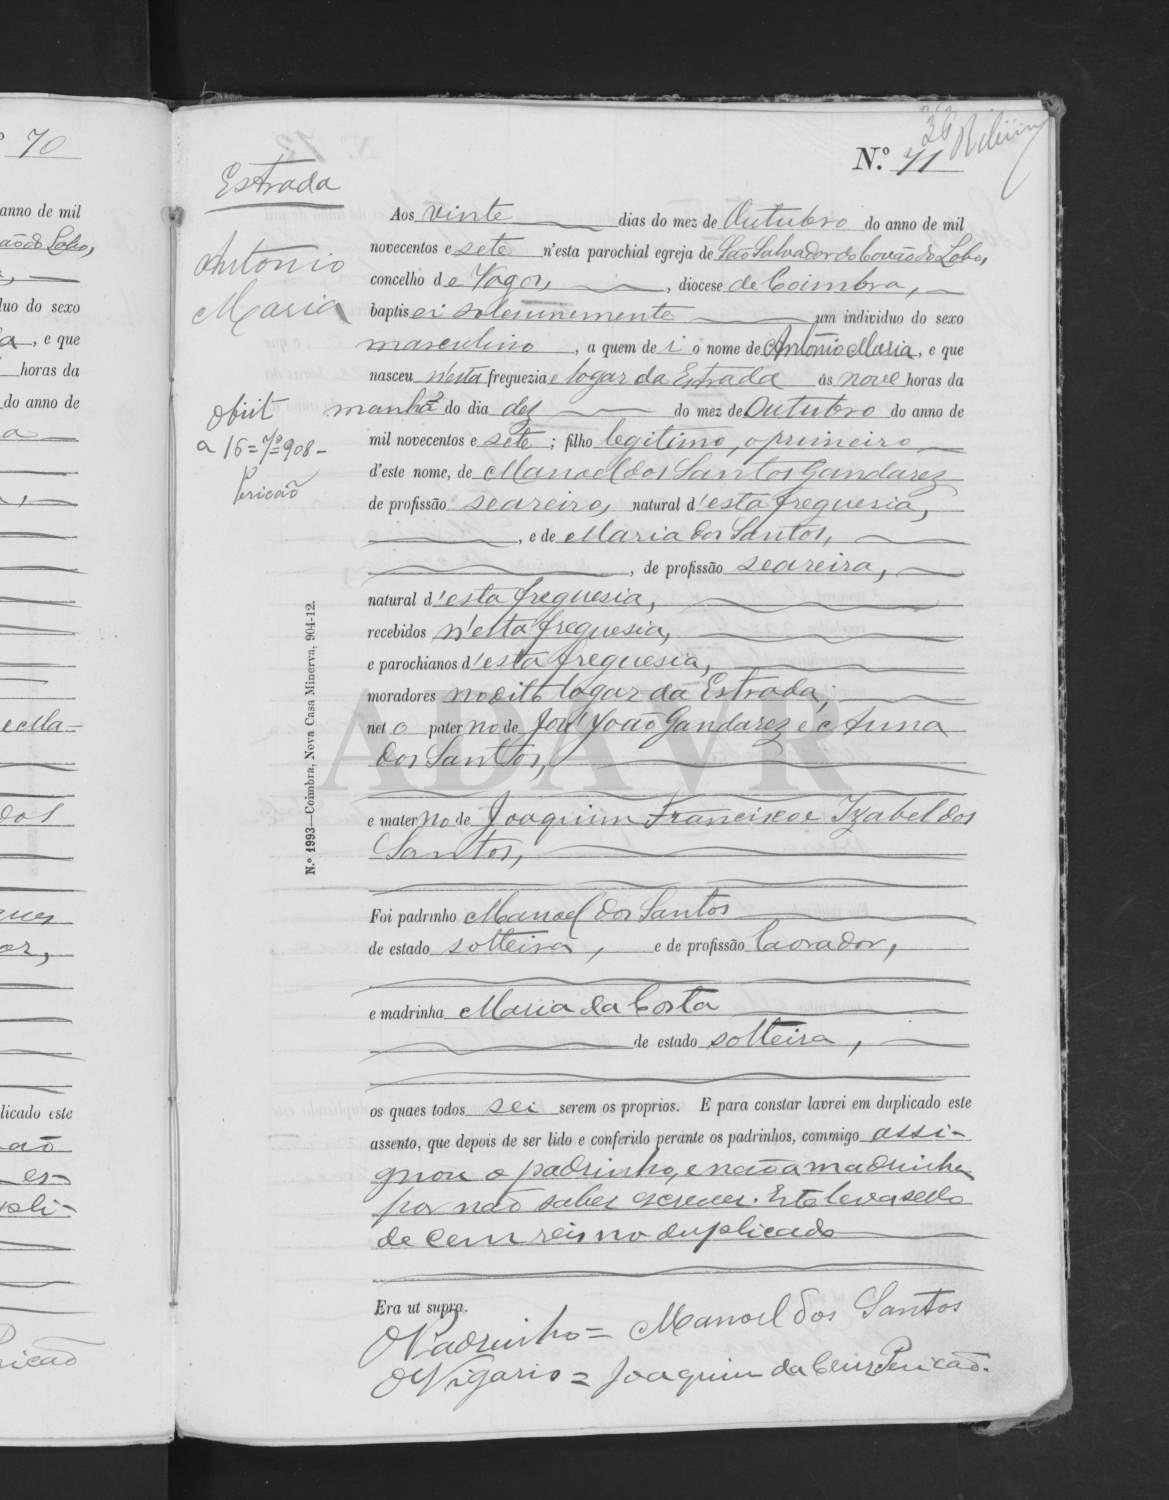 º 70
anno de mil
ão do Lobo,
duo do sexo
a, e que
horas da
do anno de
a
e Ma-
dos
licado este
ão
es-
pli-
Pericão
36 Ribeiro
N.º 71
Estrada
Antonio
Maria
Obiit
a 16=7º=908-
Pericão
Aos vinte dias do mez de Outubro do anno de mil
novecentos e sete n'esta parochial egreja de São Salvador do Covão do Lobo,
concelho de Vagos, , diocese de Coimbra,
baptisei solemnemente um individuo do sexo
masculino, a quem dei o nome de Antonio Maria, e que
nasceu n'esta freguezia e logar da Estrada ás nove horas da
manhã do dia dez do mez de Outubro do anno de
mil novecentos e sete; filho legitimo, o primeiro
d'este nome, de Manoel dos Santos Gandarez
de profissão seareiro, natural d'esta freguesia,
, e de Maria dos Santos,
, de profissão seareira,
natural d'esta freguesia,
recebidos n'esta freguesia,
e parochianos d'esta freguesia,
moradores no dito logar da Estrada;
neto paterno de José João Gandarez e Anna
dos Santos,
e materno de Joaquim Francisco e Izabel dos
Santos,
Foi padrinho Manoel dos Santos
de estado solteiro, e de profissão lavrador,
e madrinha Maria da Costa
de estado solteira,
os quaes todos sei serem os proprios. E para constar lavrei em duplicado este
assento, que depois de ser lido e conferido perante os padrinhos, commigo assi-
gnou o padrinho, e não a madrinha
por não saber escrever. Este leva sello
de cem reis no duplicado
Era ut supra.
O Padrinho = Manoel dos Santos
O Vigario = Joaquim da Cruz Pericão.
N.º 1993—Coimbra, Nova Casa Minerva, 904-12.
ADAVR